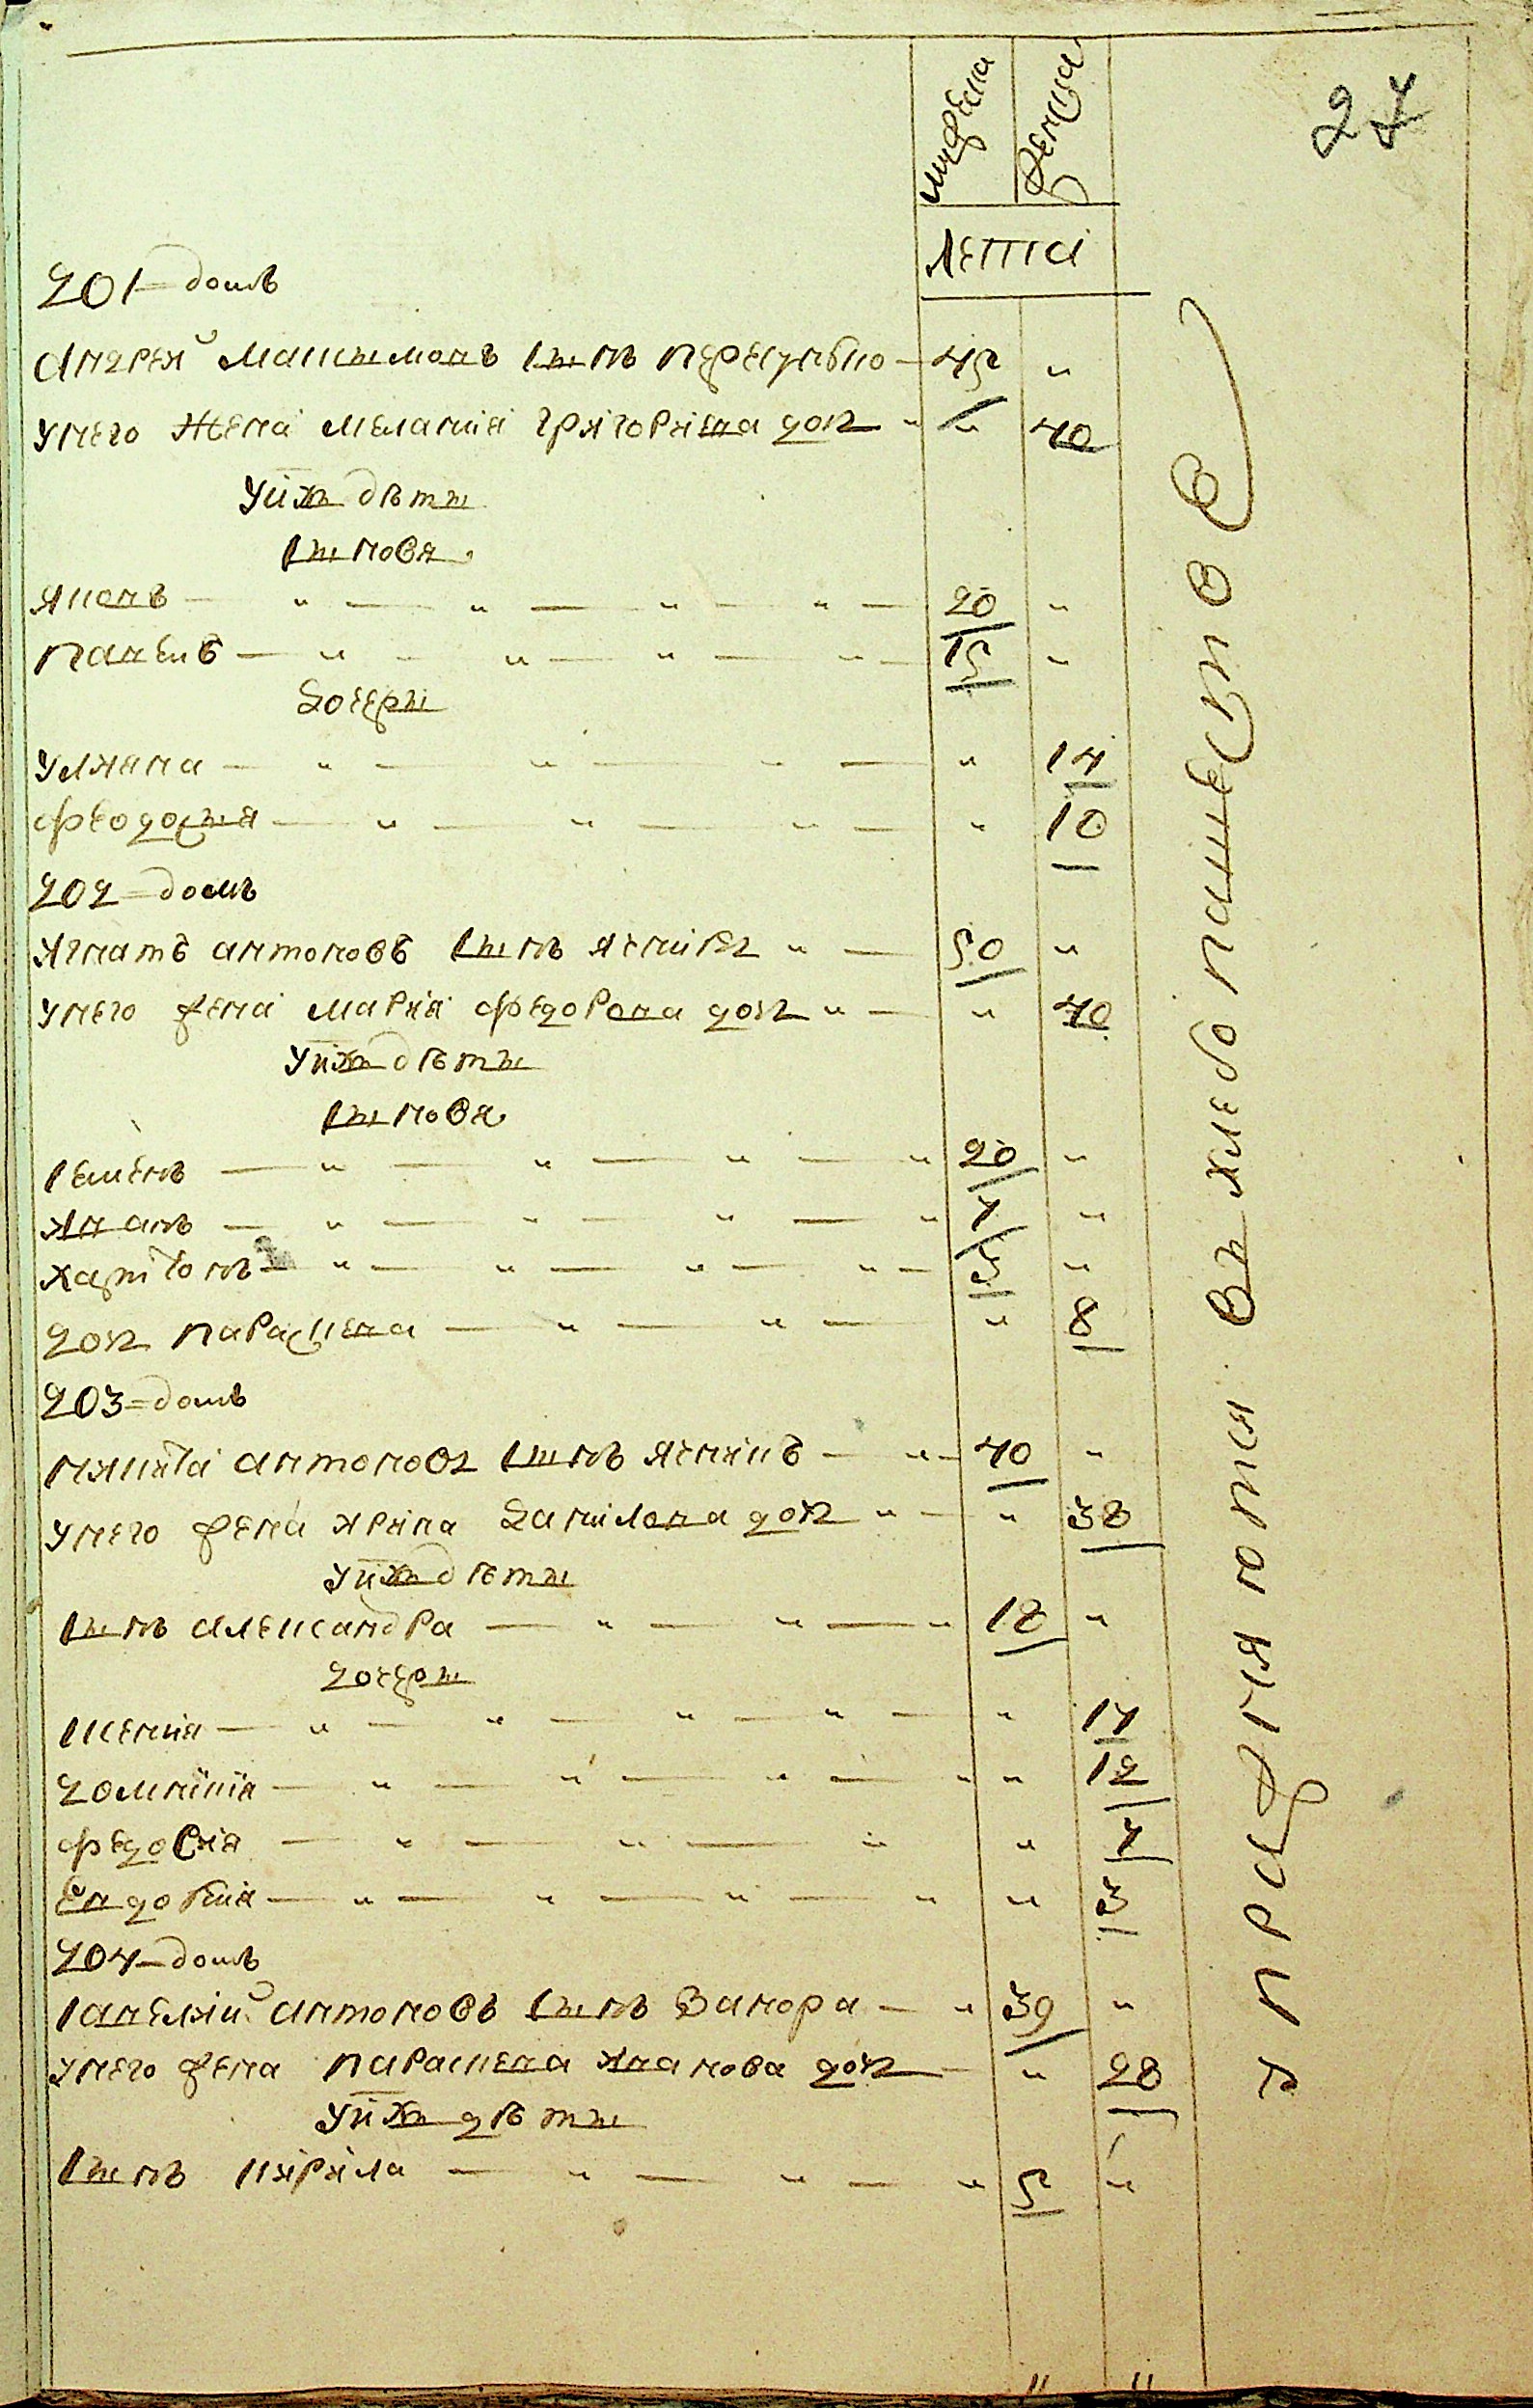 27
мужеска
женска
Лета
201 домъ
Андрей Макимовъ сынъ 45
Унего жена Меланиа Григориева доч 40
Уних дѣти
Сынове
Яковъ 20
Павелъ 15
Дочери
Улияна 14
Феодосия 10
202 домъ
Игнатъ антоновъ сынъ 50
Унего жена Мария Федорова доч 40
Уних дѣти
Сынове
Семенъ 20
Иванъ 7
Харитонъ 5
доч Параскева 8
203 домъ
Никита антоновъ сынъ 40
Унего жена Ирина Данилова доч 38
Уних дѣти
Сынъ александра 18
дочери
Ксения 14
Домникия 12
Федосия 7
Евдокия 3
204 домъ
Савелий антоновъ сынъ 39
Унего жена параскева Иванова доч 28
Уних дѣти
Сынъ Кирила 5
упражняются въ хлебопашество